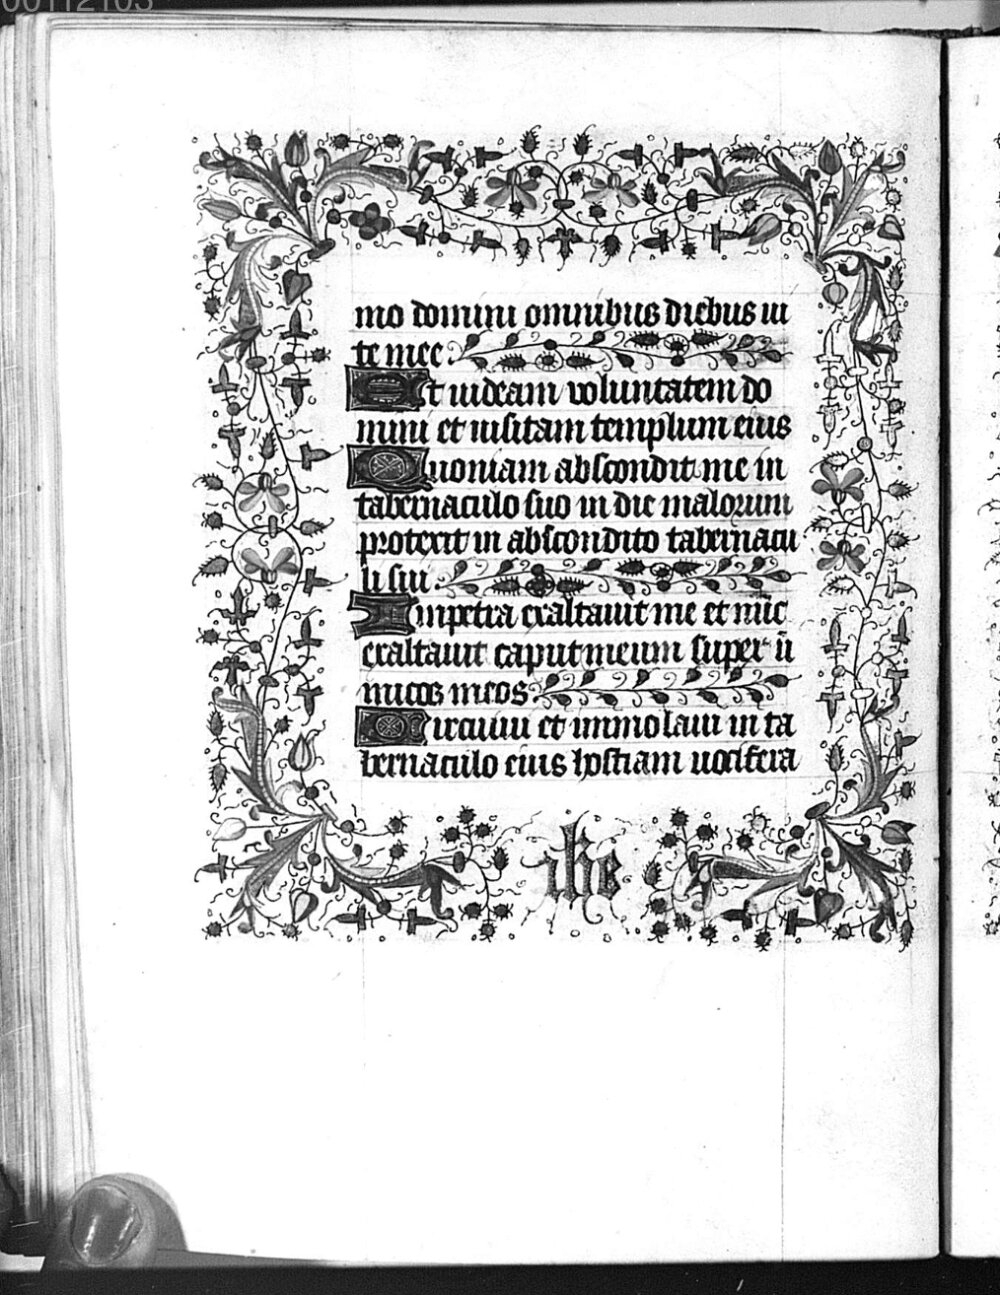 00112103
mo domini omnibus diebus ui
te mee
Et uideam voluntatem do
mini et uisitam templum eius
Quoniam abscondit me in
tabernaculo suo in die malorum
protexit in abscondito tabernacu
li sui
In petra exaltauit me et nūc
exaltauit caput meum super ū
micos meos
Circuiui et immolaui in ta
bernaculo eius hostiam uocifera
ihs